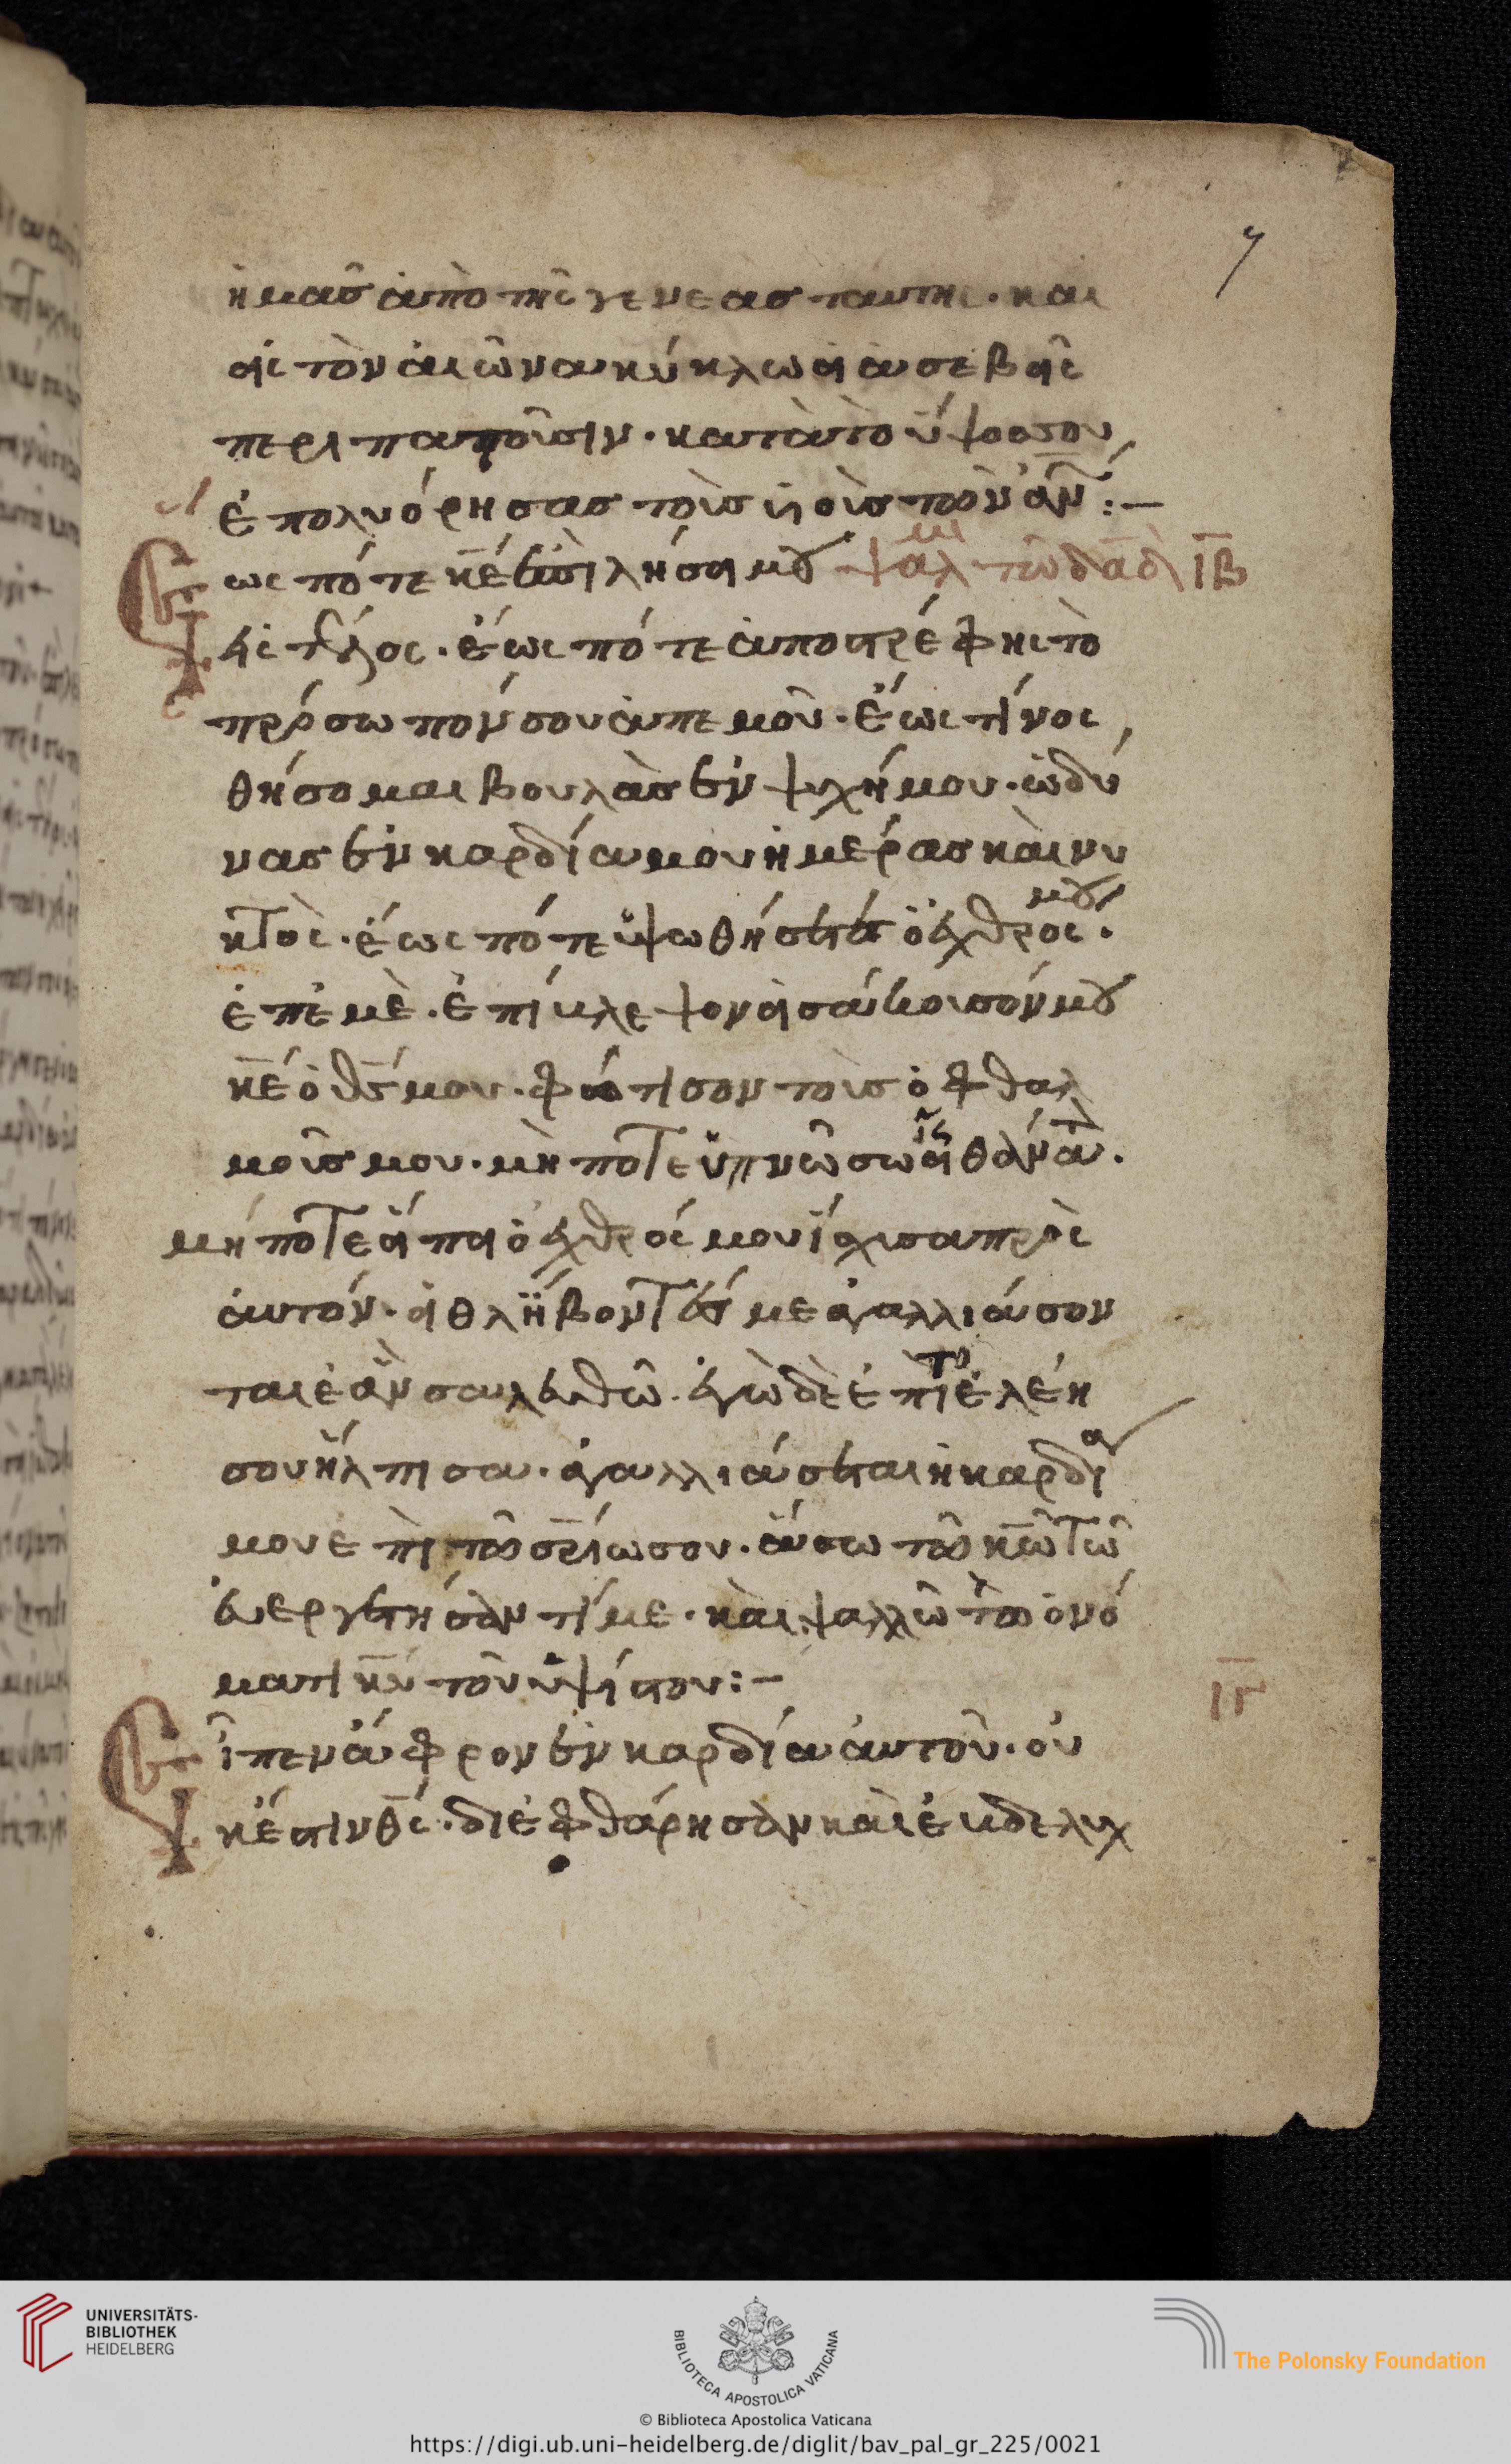 7
ἡμᾶσ ἀπὸ τῆς γενεασ ταυτης · και
εἰς τὸν ἀιῶνα κύκλω ὁι ἀσεβεῖς
περιπατοῦσιν · κατὰ τὸ ὕψοσσου
ἐπολυόρησασ τοὺσ ὑιοὺσ τῶν ἀν̅ων :–
Ἕως πότε κ̅έ ἐπιλήσει μου ψαλμ τῶ δα̅δ ι̅β
εἰς τέλος · ἕως πότε ἀποστρέφης τὸ
πρόσωπόν σου ἀπ εμοῦ · ἕως τίνος
θήσομαι βουλὰσ ἐν ψυχή μου · ὠδύ
νασ ἐν καρδία μου ἡμέρασ κὰι νυ
κτὸς · ἕως πότε ὑψωθήσεται ὁ ἐχθρός μου
ἐπ ἐμὲ · ἐπίκλεψον εἰσάκουσόν μου
κ̅έ ὁ θ̅ς μου · φώτισον τοὺσ ὀφθαλ
μοῦσ μου · μὴ ποτε ὑπνῶσω εἰς θάνατ̅ ·
μή ποτε εἴπει ὁ ἐχθρός μου ἴσχυσα πρὸς
ἀυτόν · ὁι θλήβοντές με ἀγαλλιάσον
ται ἐὰν σαλευθῶ · ἐγὼ δὲ ἐπὶ τῶ ἐλέη
σου ἤλπισα · ἀγαλλιάσεται ἡ καρδία
μου ἐπὶ τῶ σ̅ρίω σου · ἄσω τῶ κ̅ω τῶ
ἐυεργετήσαντί με · κὰι ψαλλῶ τῶ ὀνό
ματι κ̅υ τοῦ ὑψίστου :–
Εἶπεν ἄφρον ἐν καρδία ἀυτοῦ · οὐ ι̅γ
κέστιν θ̅ς · διέφθάρησαν κὰι ἐκδελυχ
UNIVERSITÄTS-
BIBLIOTHEK
HEIDELBERG
BIBLIOTECA APOSTOLICA VATICANA
The Polonsky Foundation
© Biblioteca Apostolica Vaticana
https://digi.ub.uni-heidelberg.de/diglit/bav_pal_gr_225/0021